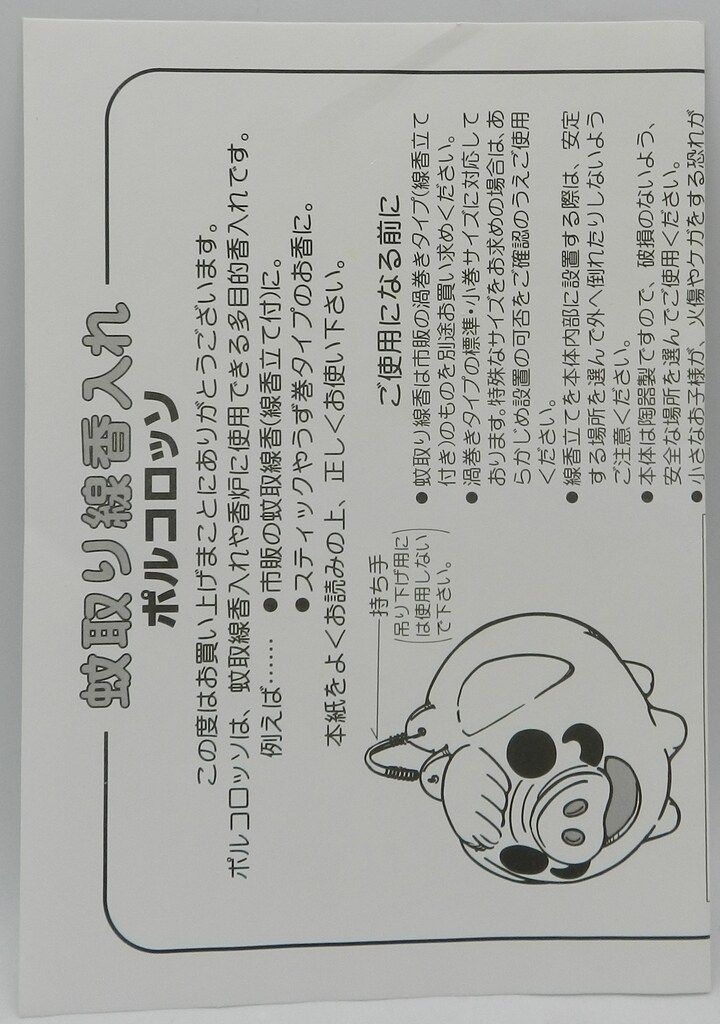 蚊取り線香入れ
ポルコロッソ
この度はお買い上げまことにありがとうございます。
ポルコロッソは、蚊取線香入れや香炉に使用できる多目的香入れです。
例えば……●市販の蚊取線香(線香立て付)に。
●スティックやうず巻タイプのお香に。
本紙をよくお読みの上、正しくお使い下さい。
持ち手
(吊り下げ用に
は使用しない
で下さい。)
ご使用になる前に
●蚊取り線香は市販の渦巻きタイプ(線香立て
付き)のものを別途お買い求めください。
●渦巻きタイプの標準・小巻サイズに対応して
おります。特殊なサイズをお求めの場合は、あ
らかじめ設置の可否をご確認のうえご使用
ください。
●線香立てを本体内部に設置する際は、安定
する場所を選んで外へ倒れたりしないよう
ご注意ください。
●本体は陶器製ですので、破損のないよう、
安全な場所を選んでご使用ください。
●小さなお子様が、火傷やケガをする恐れが